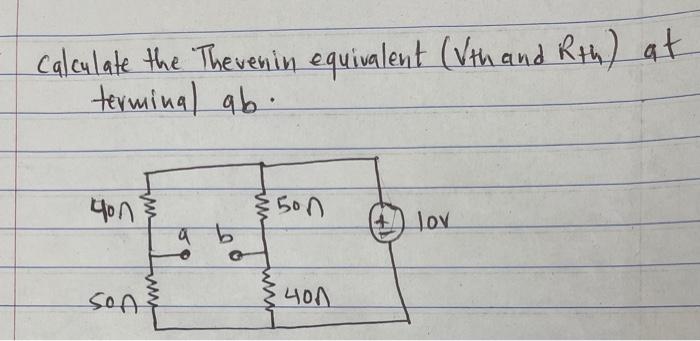 Calculate the Thevenin equivalent (Vth and Rth) at
terminal ab.
40Ω
50Ω
+
-
10V
a
b
50Ω
40Ω